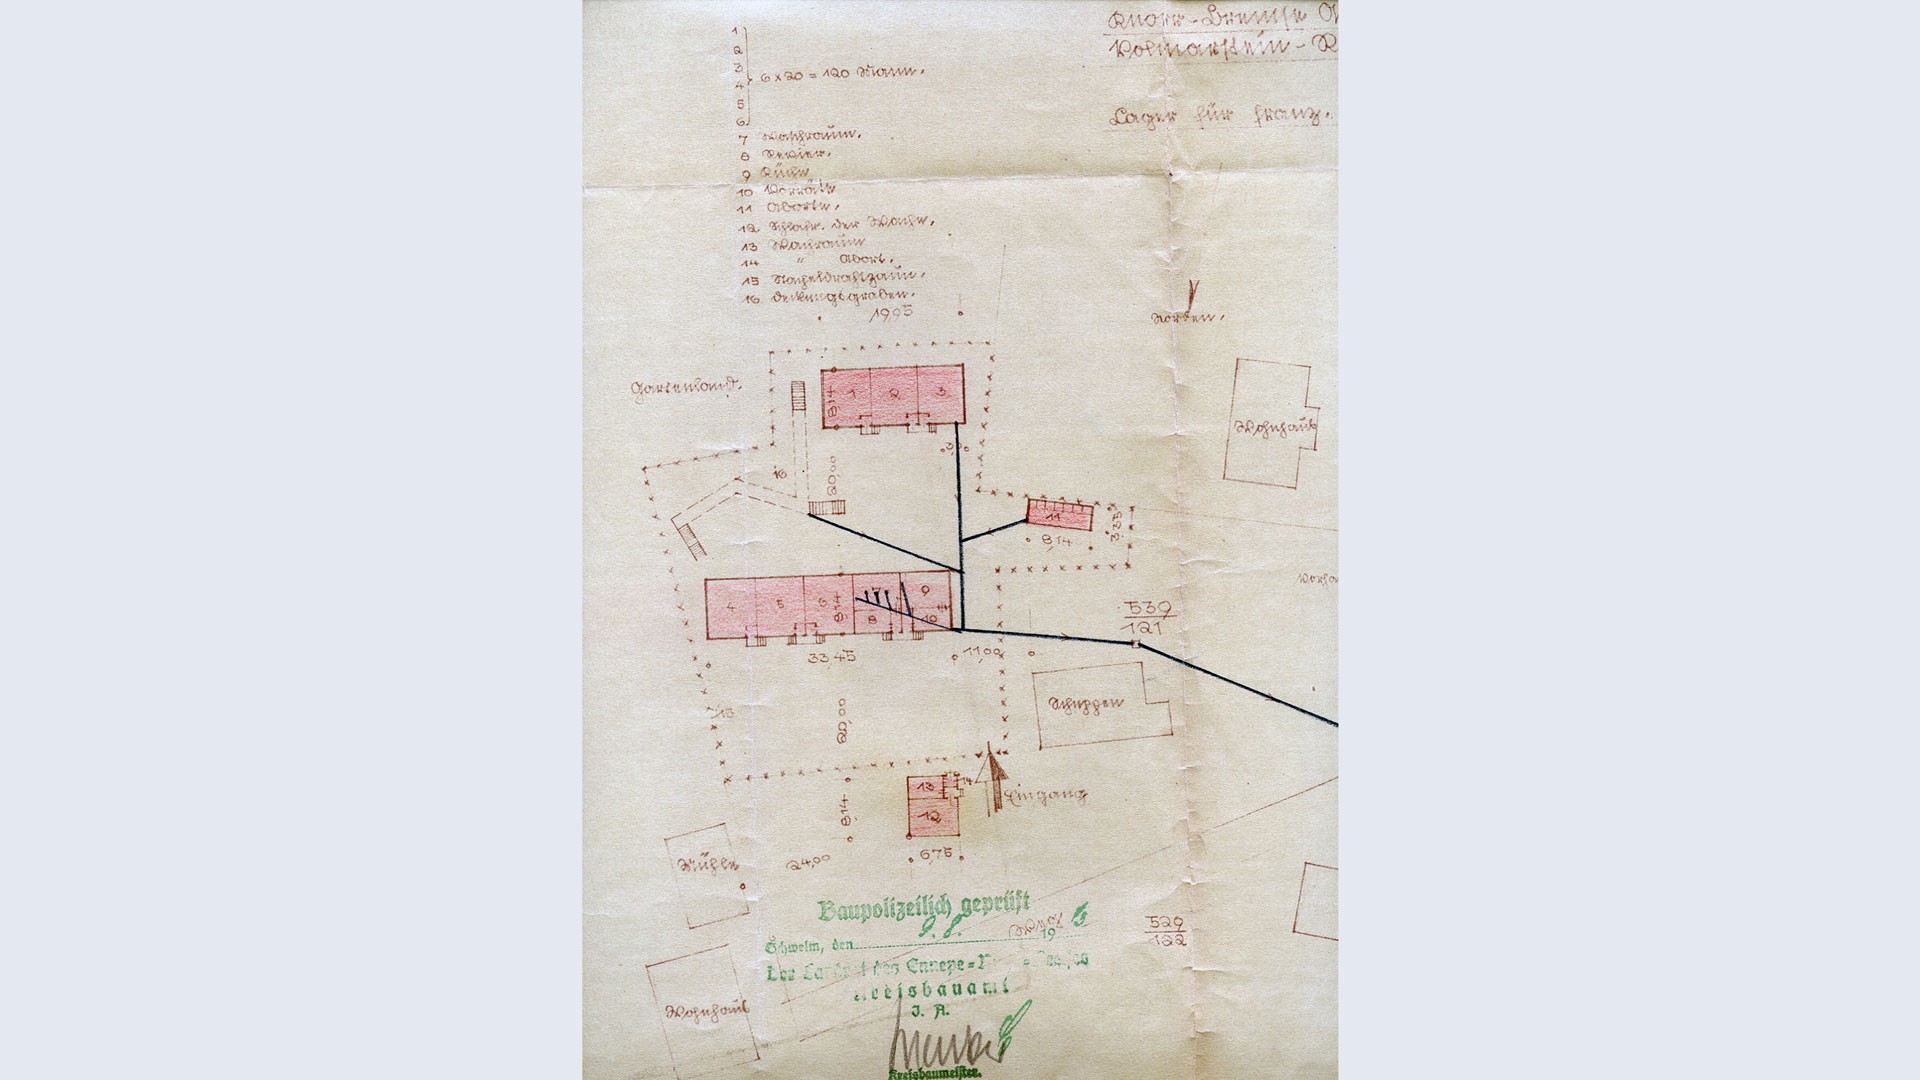 Knorr-Bremse
Volmarstein-
Lager für franz.
1
2
3
4
5
6
6 x 20 = 120 Mann.
7 Waschraum.
8 Revier.
9 Küche
10 Vorräte
11 Aborte.
12 Schlafr. der Wache.
13 Wachraum
14 " Abort.
15 Stacheldrahtzaun.
16 Deckungsgraben.
19,05
Norden.
Gartenland.
8,14
1
2
3
Wohnhaus
16
20,00
11
8,14
3,35
4
5
6
8,14
7
8
9
10
539
121
33,45
11,00
15
20,00
Schuppen
13
14
12
Eingang
8,14
6,75
Mühle
24,00
Baupolizeilich geprüft
Schwelm, den 9.8. 19
529
122
des Ennepe-
Kreisbauamt
I. A.
Wohnhaus
Kreisbaumeister.